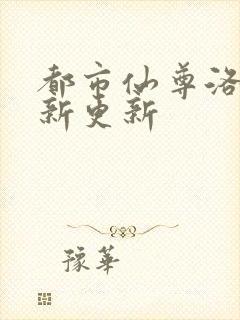 都市仙尊洛
新更新
豫華